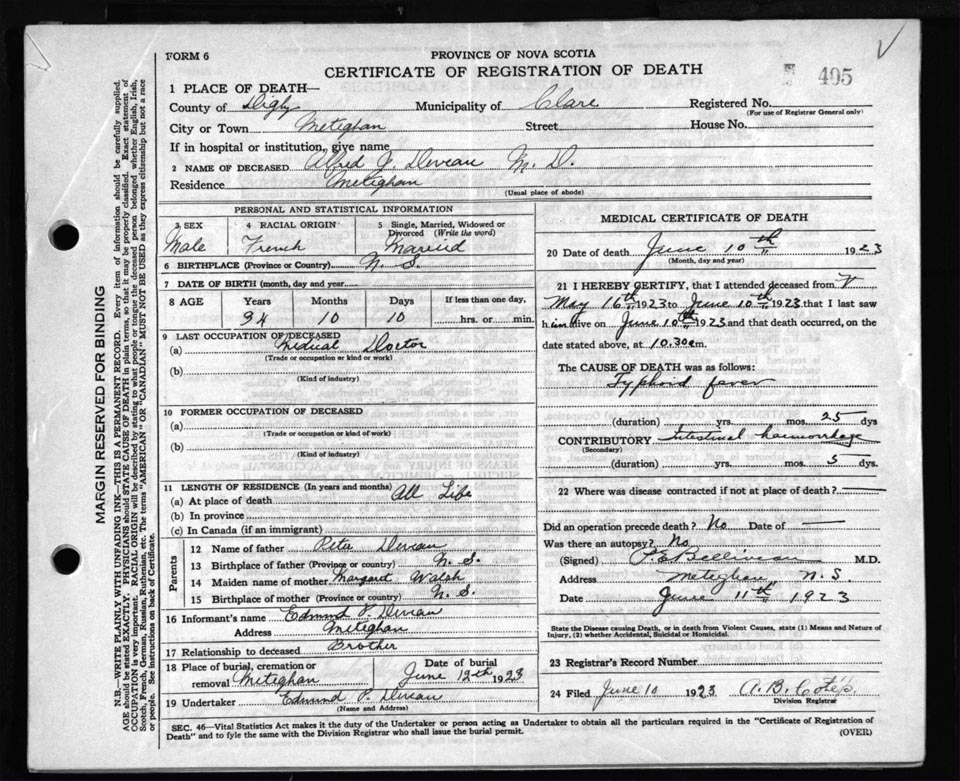 FORM 6
PROVINCE OF NOVA SCOTIA
CERTIFICATE OF REGISTRATION OF DEATH
405
1 PLACE OF DEATH—
County of Digby Municipality of Clare Registered No.
(For use of Registrar General only)
City or Town Meteghan Street House No.
If in hospital or institution, give name
2 NAME OF DECEASED Alfred J. Deveau M. D.
Residence Meteghan
(Usual place of abode)
PERSONAL AND STATISTICAL INFORMATION
3 SEX 4 RACIAL ORIGIN 5 Single, Married, Widowed or Divorced (Write the word)
Male French Married
6 BIRTHPLACE (Province or Country) N. S.
7 DATE OF BIRTH (month, day and year)
8 AGE Years Months Days If less than one day,
34 10 10 hrs. or min.
9 LAST OCCUPATION OF DECEASED
(a) Medical Doctor
(Trade or occupation or kind of work)
(b)
(Kind of industry)
10 FORMER OCCUPATION OF DECEASED
(a)
(Trade or occupation or kind of work)
(b)
(Kind of industry)
11 LENGTH OF RESIDENCE (In years and months)
(a) At place of death All Life
(b) In province
(c) In Canada (if an immigrant)
Parents
12 Name of father Peter Deveau
13 Birthplace of father (Province or Country) N. S.
14 Maiden name of mother Margaret Walsh
15 Birthplace of mother (Province or Country) N. S.
16 Informant's name Edmund P. Deveau
Address Meteghan
17 Relationship to deceased Brother
18 Place of burial, cremation or removal Meteghan Date of burial June 12th 1923
19 Undertaker Edmund P. Deveau
(Name and Address)
MEDICAL CERTIFICATE OF DEATH
20 Date of death June 10th 1923
(Month, day and year)
21 I HEREBY CERTIFY, that I attended deceased from
May 16th 1923 to June 10th 1923 that I last saw
him alive on June 10th 1923 and that death occurred, on
date stated above, at 10.30 m.
The CAUSE OF DEATH was as follows:
Typhoid fever
(duration) yrs. mos. 25 dys
CONTRIBUTORY Intestinal haemorrhage
(Secondary)
(duration) yrs. mos. 5 dys.
22 Where was disease contracted if not at place of death?
Did an operation precede death? No Date of —
Was there an autopsy? No
(Signed) M.D.
Address Meteghan N. S.
Date June 11th 1923
State the Disease causing Death, or in death from Violent Causes, state (1) Means and Nature of
Injury, (2) whether Accidental, Suicidal or Homicidal.
23 Registrar's Record Number
24 Filed June 10 1923 A. B.
Division Registrar
SEC. 46—Vital Statistics Act makes it the duty of the Undertaker or person acting as Undertaker to obtain all the particulars required in the "Certificate of Registration of
Death" and to fyle the same with the Division Registrar who shall issue the burial permit.
(OVER)
MARGIN RESERVED FOR BINDING
N.B.—WRITE PLAINLY WITH UNFADING INK—THIS IS A PERMANENT RECORD. Every item of information should be carefully supplied.
AGE should be stated EXACTLY. PHYSICIANS should STATE CAUSE OF DEATH in plain terms, so that it may be properly classified. Exact statement of
OCCUPATION is very important. RACIAL ORIGIN will be described by stating to what people or tongue the deceased person belonged whether English, Irish,
Scotch, French, German, Russian, Ruthenian, etc. The terms "AMERICAN" OR "CANADIAN" MUST NOT BE USED as they express citizenship but not a race
or people. See instructions on back of Certificate.